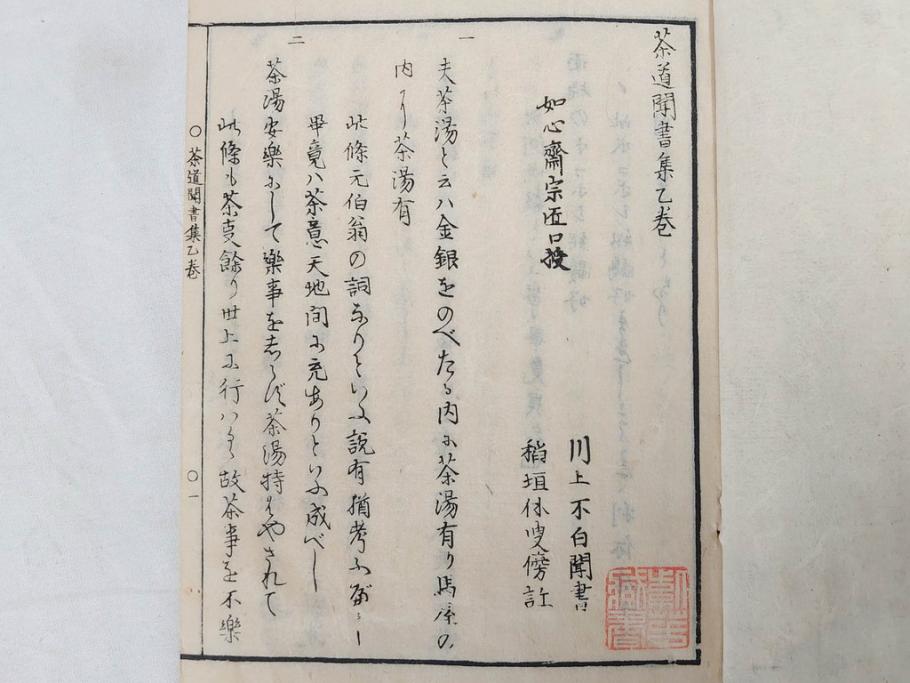 茶道聞書集乙巻
如心齋宗匠口授
川上不白聞書
稲垣休叟傍註
一
夫茶湯と云ハ金銀をのべたる内に茶湯有り馬屋の
内に茶湯有
此條元伯翁の詞なりといふ説有猶考ふべし
畢竟ハ茶意天地間に充ありといふ成べし
二
茶湯安樂にして樂事をしらず茶湯特はやされて
此條も茶事餘り世上に行ハるゝ故茶事を不樂
茶道聞書集乙巻
一